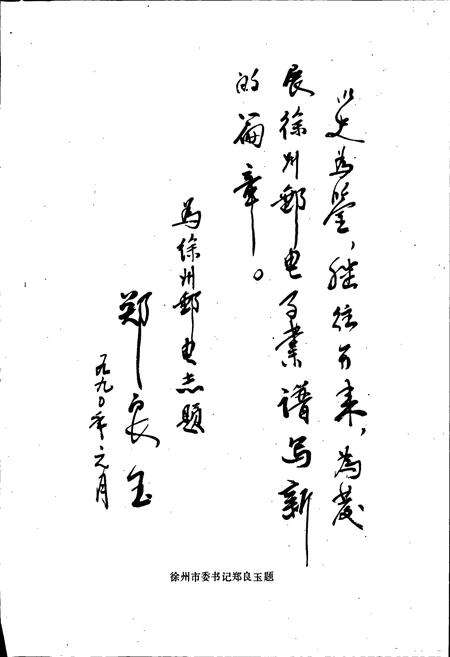 以史为鉴，继往开来，为发
展徐州邮电事业谱写新
的篇章。
为徐州邮电志题
郑良玉
一九九〇年元月
徐州市委书记郑良玉题